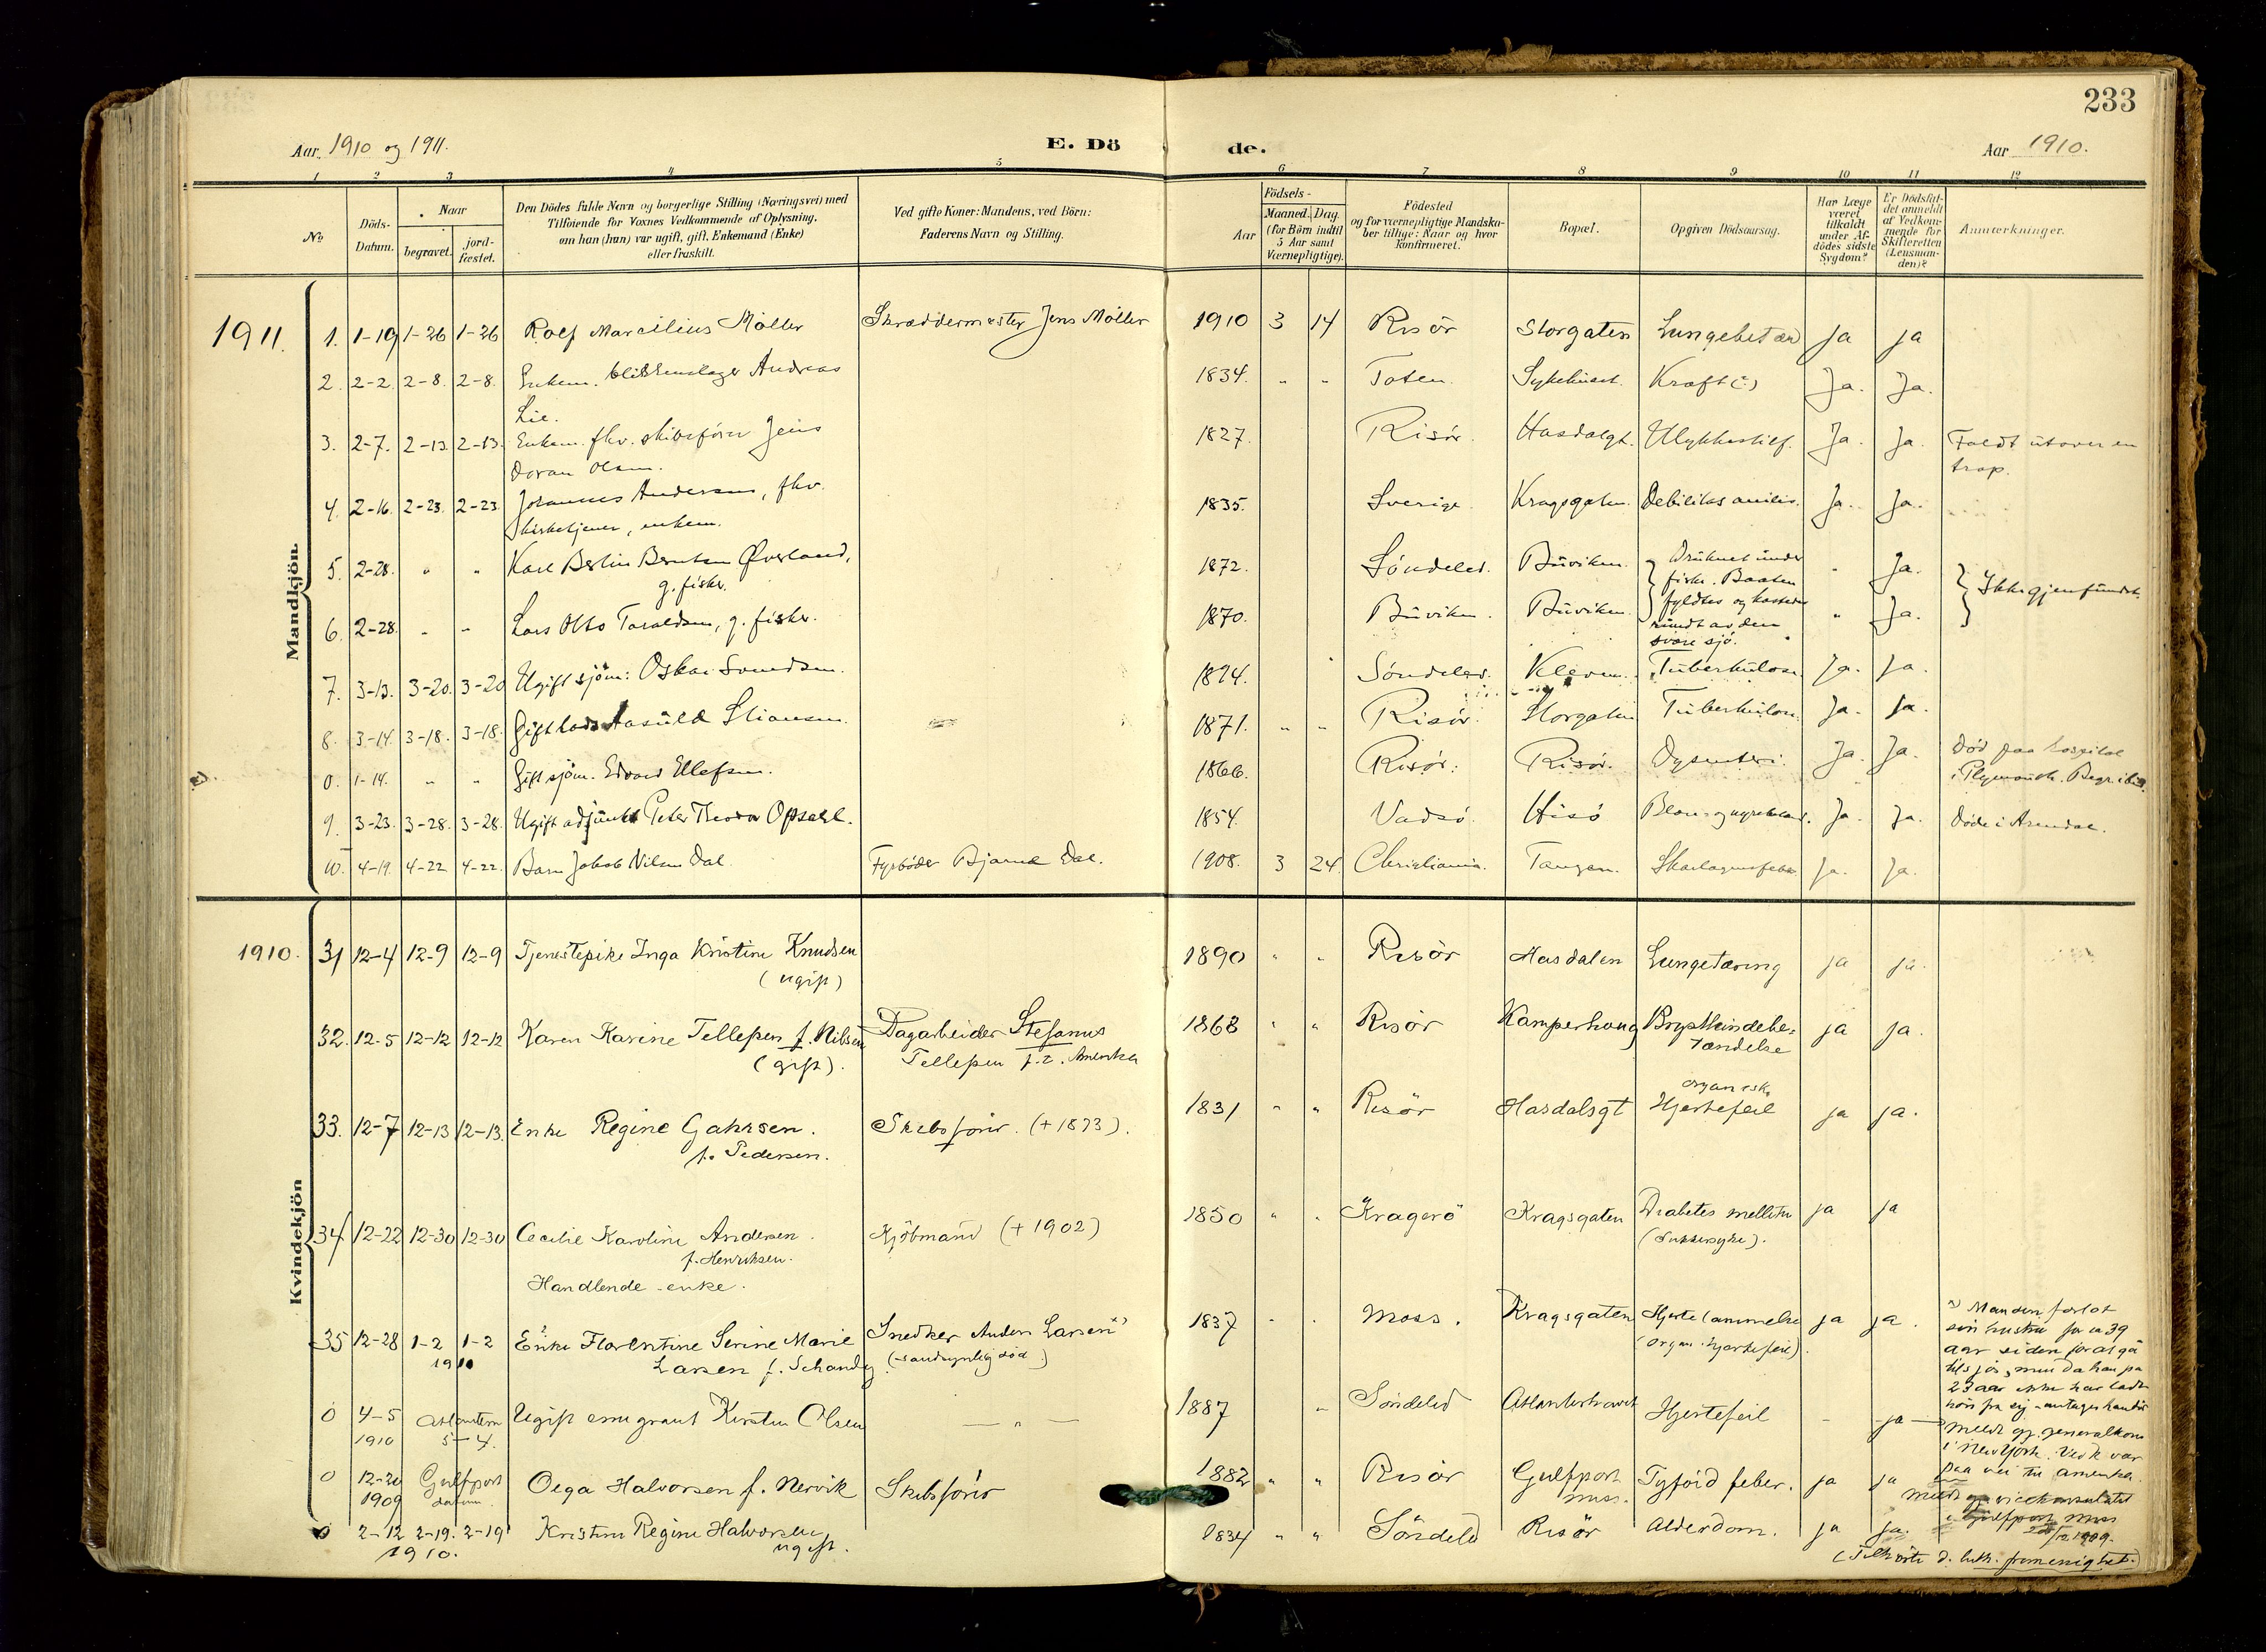 233
Aar 1910 og 1911.
E. Dö
de.
Aar 1910.
1 2 3 4 5 6 7 8 9 10 11 12
No
Döds-
Datum.
Naar
begravet.
jord-
fæstet.
Den Dödes fulde Navn og borgerlige Stilling (Næringsvei) med
Tilföiende for Voxnes Vedkommende af Oplysning,
om han (hun) var ugift, gift, Enkemand (Enke)
eller fraskilt.
Ved gifte Koner: Mandens, ved Börn:
Faderens Navn og Stilling.
Födsels-
Aar
Maaned. Dag.
(for Börn indtil
5 Aar samt
Værnepligtige).
Födested
og for værnepligtige Mandska-
ber tillige: Naar og hvor
konfirmeret.
Bopæl.
Opgiven Dödsaarsag.
Har Læge
været
tilkaldt
under Af-
dödes sidste
Sygdom?
Er Dödsfal-
det anmeldt
af Vedkom-
mende for
Skifteretten
(Lensman-
den)?
Anmærkninger.
Mandkjön.
1911.
1. 1-19 1-26 1-26 Rolf Marcilius Möller Skræddermester Jens Möller 1910 3 14 Risör Storgaten Lungebetæn ja ja
2. 2-2. 2-8. 2-8. Enkem. blikkenslager Andreas 1834. " " Toten. Sykehuset. Kræft (:) Ja. Ja.
Lie.
3. 2-7. 2-13. 2-13. Enkem. fhv. skibsförer Jens 1827. Risör. Hasdalgt. Ulykkestilf. Ja. Ja. Faldt utover en
Olsen. trap.
4. 2-16. 2-23. 2-23. Johannes Andersen, fhv. 1835. Sverige Kragsgaten. Debilitas anilis. Ja. Ja.
kirketjener, enkem.
5. 2-28. " " Karl Bertin Berntsen Øverland, 1872. Söndeled. Buviken. Druknet under " Ja. Ikke gjenfundet.
g. fisker. fiske. Baaten
6. 2-28. " " Lars Otto Taraldsen, g. fisker. 1870. Buviken. Buviken. fyldtes og kastedes " Ja.
rundt av den
svære sjö.
7. 3-13. 3-20. 3-20 Ugift sjöm: Oskar Svendsen. 1874. Söndeled. Kleven. Tuberkulose Ja. Ja.
8. 3-14. 3-18. 3-18. Gift lods Aasuld Stiansen. 1871. " " Risör. Storgaten Tuberkulose. Ja. Ja.
0. 1-14. " " Gift sjöm. Edvard Ellefsen. 1866. Risör. Risör. Dysenteri. Ja. Ja. Död paa hospital
i Plymouth.
9. 3-23. 3-28. 3-28. Ugift adjunkt Peter Theodor Opsahl. 1854. Vadsö. Hisö Ja. Ja. Döde i Arendal.
10. 4-19. 4-22 4-22. Barn Jakob Nilsen Dal. Fyrböder Bjarne Dal. 1908. 3 24. Christiania. Tangen. Skarlagensfeber Ja. Ja.
Kvindekjön
1910. 31 12-4 12-9 12-9 Tjenestepike Inga Kristine Knudsen 1890 " " Risör Hasdalen Lungetæring ja ja.
(ugift)
32. 12-5 12-12 12-12 Karen Karine Tellefsen f. Nilsen Dagarbeider Stefanus 1868 " " Risör Kamperhaug Brysthindebe- ja ja.
(gift). Tellefsen p.t. Amerika tændelse
33. 12-7 12-13 12-13. Enke Regine Gahrsen. Skibsförer. (+1873). 1831 " " Risör Hasdalsgt organisk. Hjertefeil ja ja.
f. Pedersen.
34 12-22 12-30 12-30 Cecilie Karoline Andersen. Kjöbmand (+1902) 1850 " " Kragerö Kragsgaten Diabetes mellitus ja ja
f. Henriksen. (Sukkersyke).
Handlende-enke.
35 12-28 1-2 1-2 Enke Florentine Serine Marie Snedker Anders Larsen x) 1837 " " Moss. Kragsgaten Hjertelammelse ja ja. x) Manden forlot
1911 Larsen f. (sandsynlig död) (organ. hjertefeil). sin hustru for ca 39
aar siden for at gå
tilsjös, men da han på
23 aar ikke har ladt
höre fra sig - antages han död
0 4-5 Atlanteren Ugift emigrant Kirsten Olsen — " — 1887 " Söndeled Atlanterhavet Hjertefeil - ja meldt gj. generalkons
1910 5-4. i New York. Vedk. var
paa vei til Amerika.
0 12-20 Gulfport Olga Halvorsen f. Nervik Skibsförer 1882 " " Risör Gulfport Tyfoid feber. ja ja meldt gj. vicekonsulatet
1909 datum. miss. i Gulfport Miss
1909.
0 2-12 2-19. 2-19 Kristine Regine Halvorsen 1834 " " Söndeled Risör Alderdom. ja ja.
1910. ugift. (Tilhörte d. luth. frimenighet.)